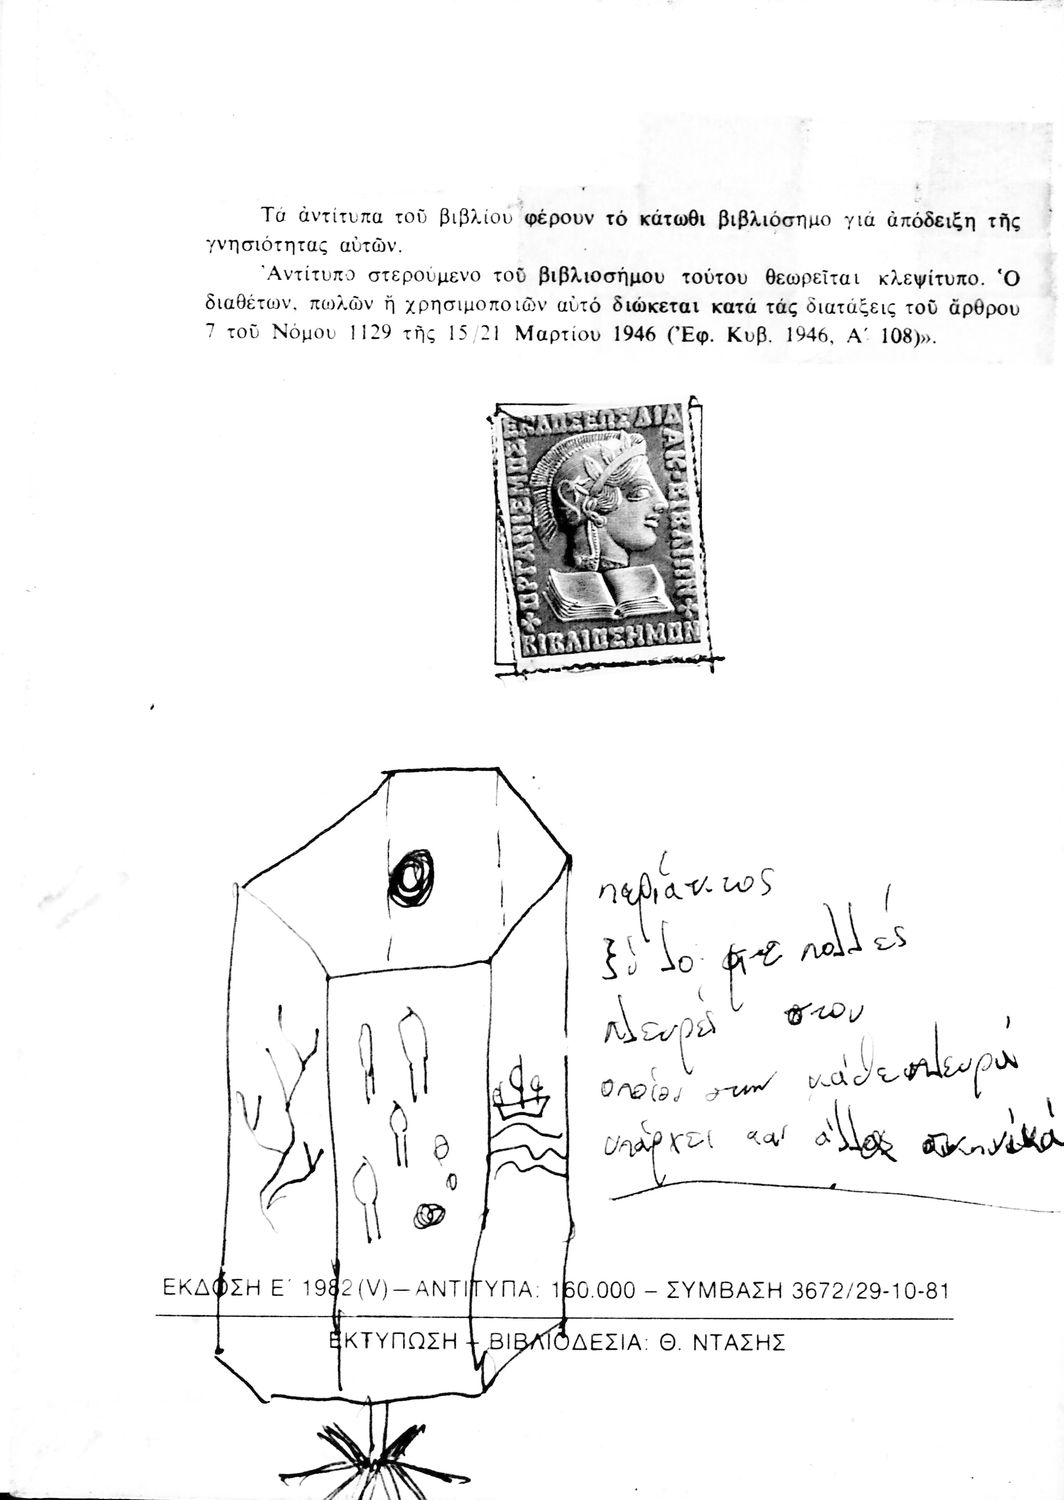 Τά ἀντίτυπα τοῦ βιβλίου φέρουν τό κάτωθι βιβλιόσημο γιά ἀπόδειξη τῆς
γνησιότητας αὐτῶν.
Ἀντίτυπο στερούμενο τοῦ βιβλιοσήμου τούτου θεωρεῖται κλεψίτυπο. Ὁ
διαθέτων, πωλῶν ἤ χρησιμοποιῶν αὐτό διώκεται κατά τάς διατάξεις τοῦ ἄρθρου
7 τοῦ Νόμου 1129 τῆς 15/21 Μαρτίου 1946 (Ἐφ. Κυβ. 1946, Α΄ 108)».
ΟΡΓΑΝΙΣΜΟΣ ΕΚΔΟΣΕΩΣ ΔΙΔΑΚ. ΒΙΒΛΙΩΝ
ΒΙΒΛΙΟΣΗΜΟΝ
περίακτος
ξύλο με πολλές
πλευρές στου
οποίου στην κάθε πλευρά
υπάρχει και άλλο σκηνικό
ΕΚΔΟΣΗ Ε΄ 1982 (V) — ΑΝΤΙΤΥΠΑ: 160.000 — ΣΥΜΒΑΣΗ 3672/29-10-81
ΕΚΤΥΠΩΣΗ — ΒΙΒΛΙΟΔΕΣΙΑ: Θ. ΝΤΑΣΗΣ